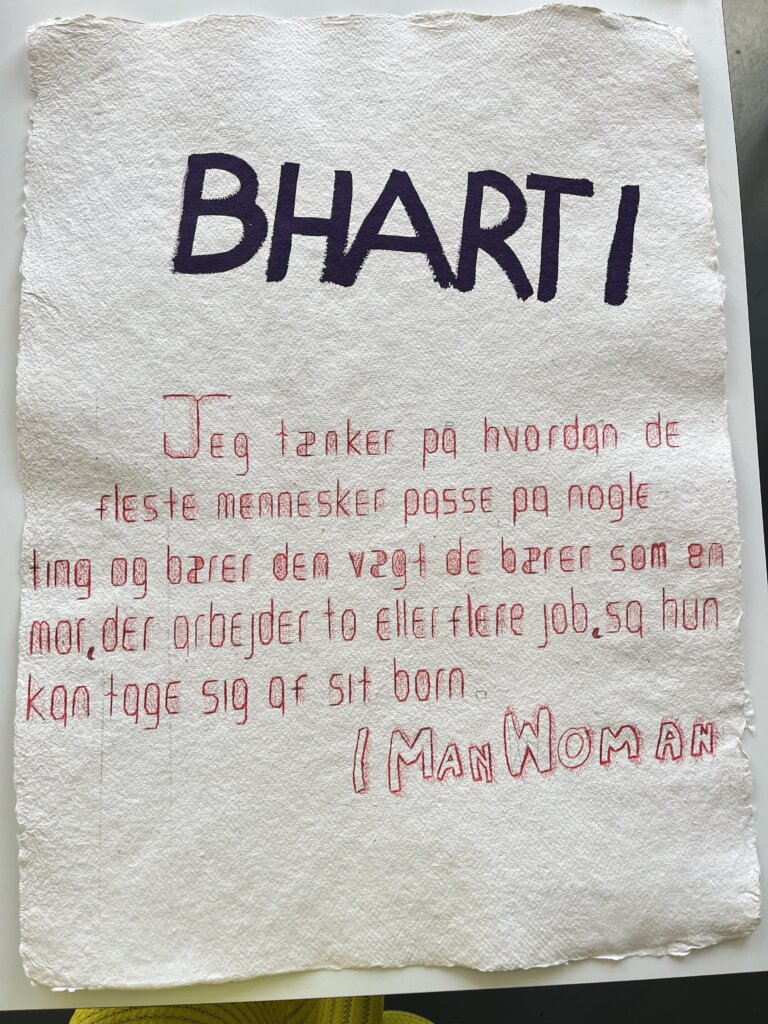 BHARTI
Jeg tænker pa hvordan de
fleste mennesker passe pa nogle
ting og bærer den vægt de bærer som en
mor, der arbejder to eller flere job, sa hun
kan tage sig af sit born.
I MAN WOMAN